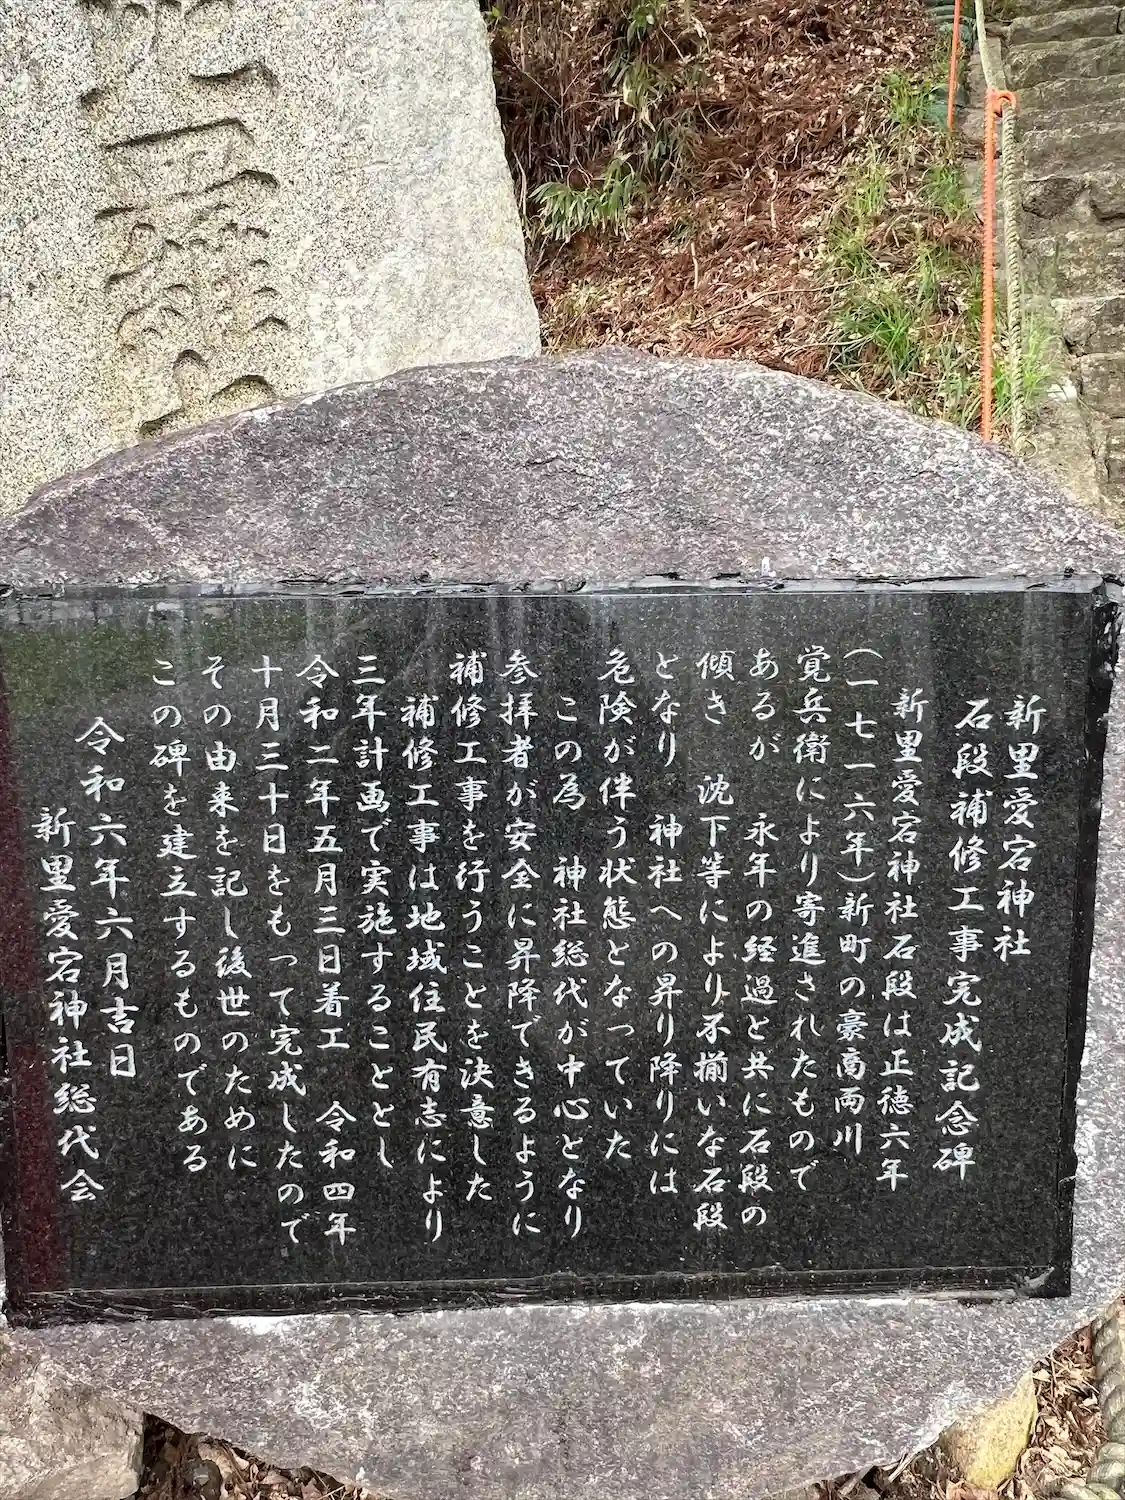 新里愛宕神社
石段補修工事完成記念碑
新里愛宕神社石段は正徳六年
(一七一六年)新町の豪商両川
覚兵衛により寄進されたもので
あるが 永年の経過と共に石段の
傾き 沈下等により不揃いな石段
となり 神社への昇り降りには
危険が伴う状態となっていた
この為 神社総代が中心となり
参拝者が安全に昇降できるように
補修工事を行うことを決意した
補修工事は地域住民有志により
三年計画で実施することとし
令和二年五月三日着工 令和四年
十月三十日をもって完成したので
その由来を記し後世のために
この碑を建立するものである
令和六年六月吉日
新里愛宕神社総代会